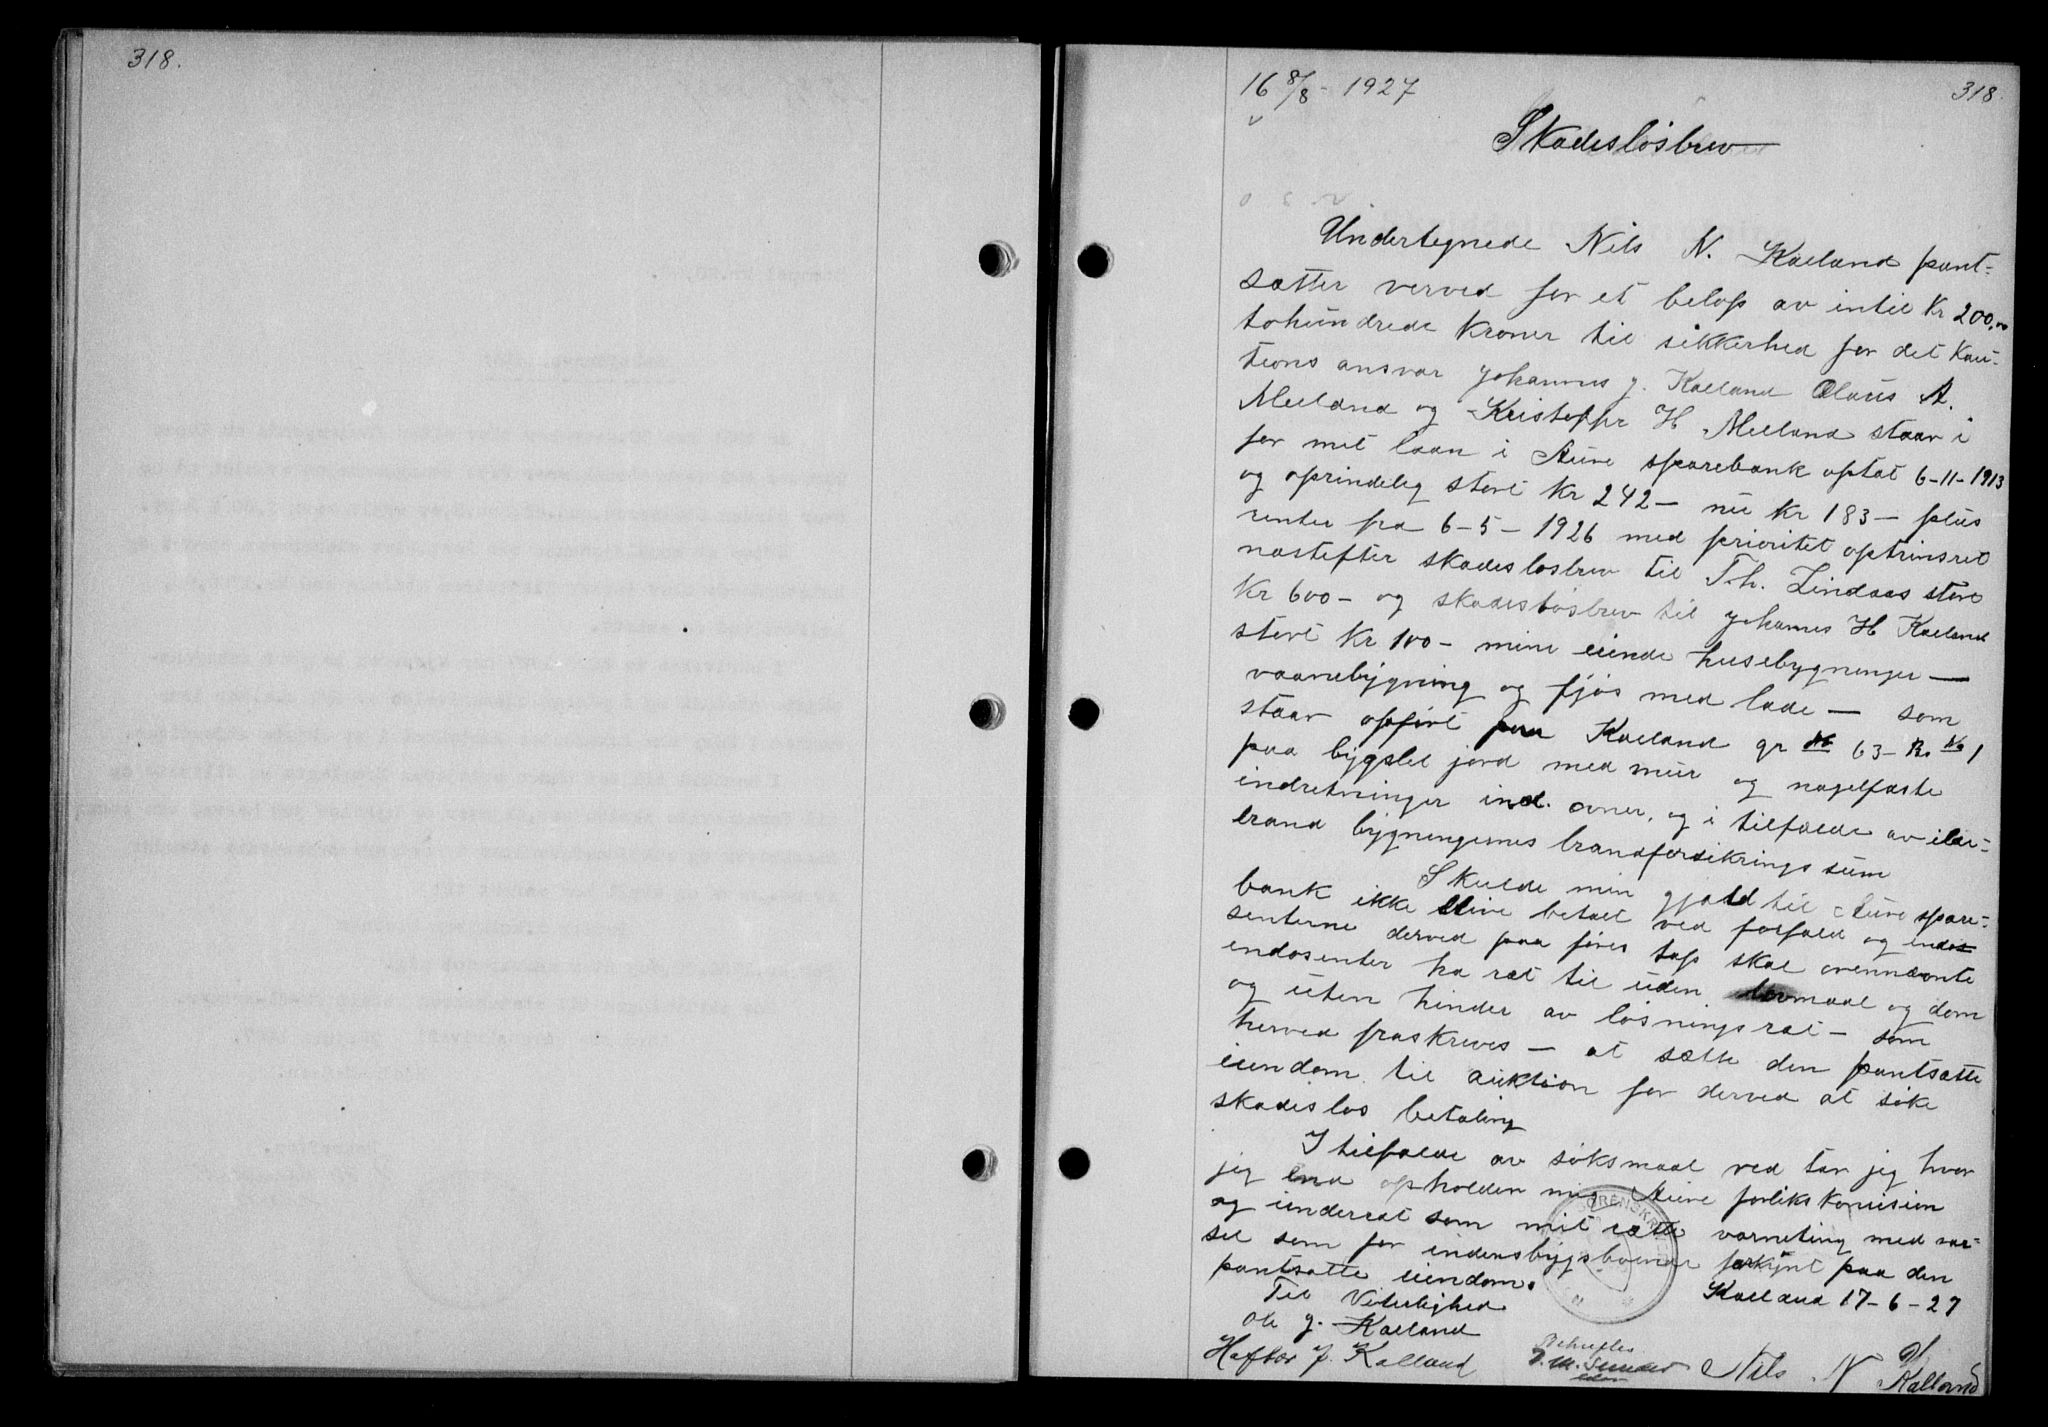 318.
16 8/8 - 1927
318.
Skadesløsbrev
Undertegnede Nils N. Kaland pant-
sætter verved for et beløp av intil Kr 200,00
tohundrede kroner til sikkerhed for det kau-
tions ansvar Johannes J. Kaland Olaus A.
Meland og Kristoffer H Meland staar i
for mit laan i Aure sparebank optat 6-11-1913
og oprindelig stort Kr 242 - nu Kr 183 - plus
renter fra 6-5-1926 med prioritet optrinsret
næstefter skadesløsbrev til Th. Lindaas stort
Kr 600 - og skadesløsbrev til Johannes H Kaland
stort Kr 100 - mine eiende husebygninger -
vaanebygning og fjøs med lade - som
staar opført paa Kaland gr № 63 - Br № 1
paa bygslet jord med mur og nagelfaste
indretninger incl. ovner, og i tilfælde av ilde-
brand bygningernes brandforsikringssum
Skulde min gjæld til Aure spare-
bank ikke blive betalt ved forfald og endos-
senterne derved paaføres tap skal ovennævnte
endosenter ha ret til uden lovmaal og dom
og uten hinder av løsningsret - som
herved fraskrives - at sætte den pantsatte
eiendom til auktion for derved at søke
skadesløs betaling
I tilfælde av søksmaal ved tar jeg hvor
jeg end opholder mig Aure forlikskomision
og underret som mit rette varneting med var-
sel som for indenbygsboende forkynt paa den
pantsatte eiendom.
Kaland 17-6-27
Til Vitterlighed
Ole J. Kaland
Haftor J. Kalland
Nils N Kalland
SORENSKRIVEREN